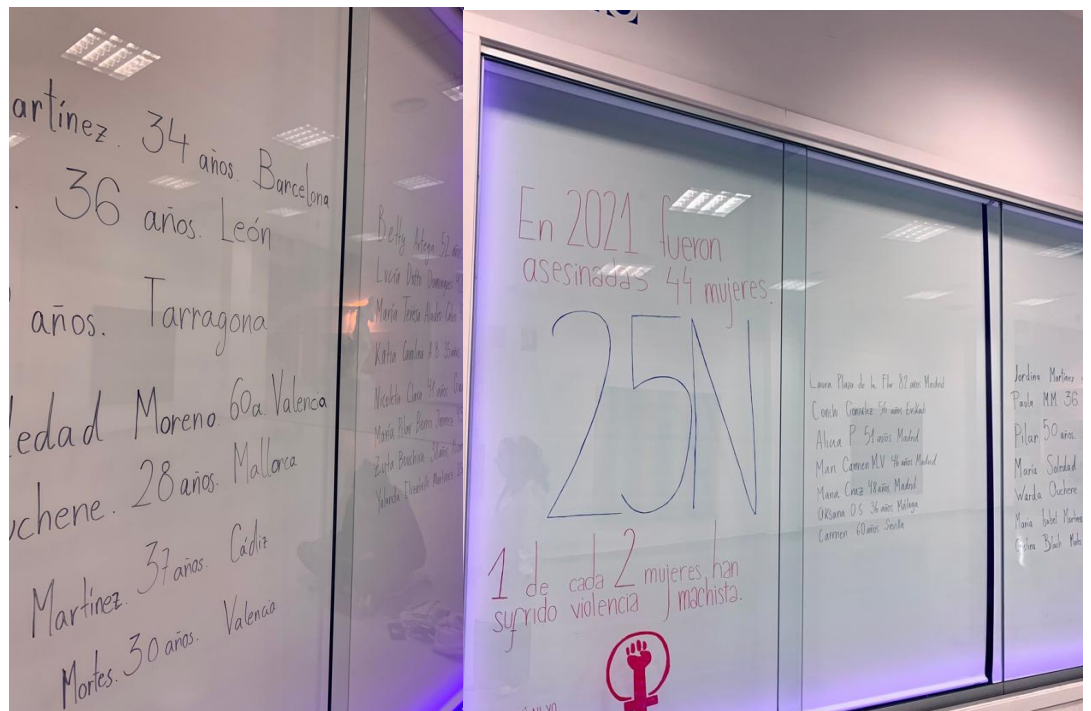 artínez. 34 años. Barcelona
36 años. León
años. Tarragona
edad Moreno 60a. Valencia
uchene. 28 años. Mallorca
Martínez. 37 años. Cádiz
Mortes. 30 años. Valencia
Betty 52 años
Lucía Dotto
María Teresa
Katia Carolina A B 35 años
Nicoleta 41 años
María Pilar Berrio Jimenez
38 años
Yolanda
En 2021 fueron
asesinadas 44 mujeres.
25N
1 de cada 2 mujeres han
sufrido violencia machista.
Laura Plaza de la Flor 82 años Madrid
Conchi González 56 años Euskadi
Alicia P 51 años Madrid
Mari Carmen M.V 46 años Madrid
María Cruz 48 años Madrid
Oksana O S 36 años Málaga
Carmen 60 años Sevilla
Jordina Martínez
Paula MM 36
Pilar 50 años.
María Soledad
Warda Ouchene
María Isabel Martínez